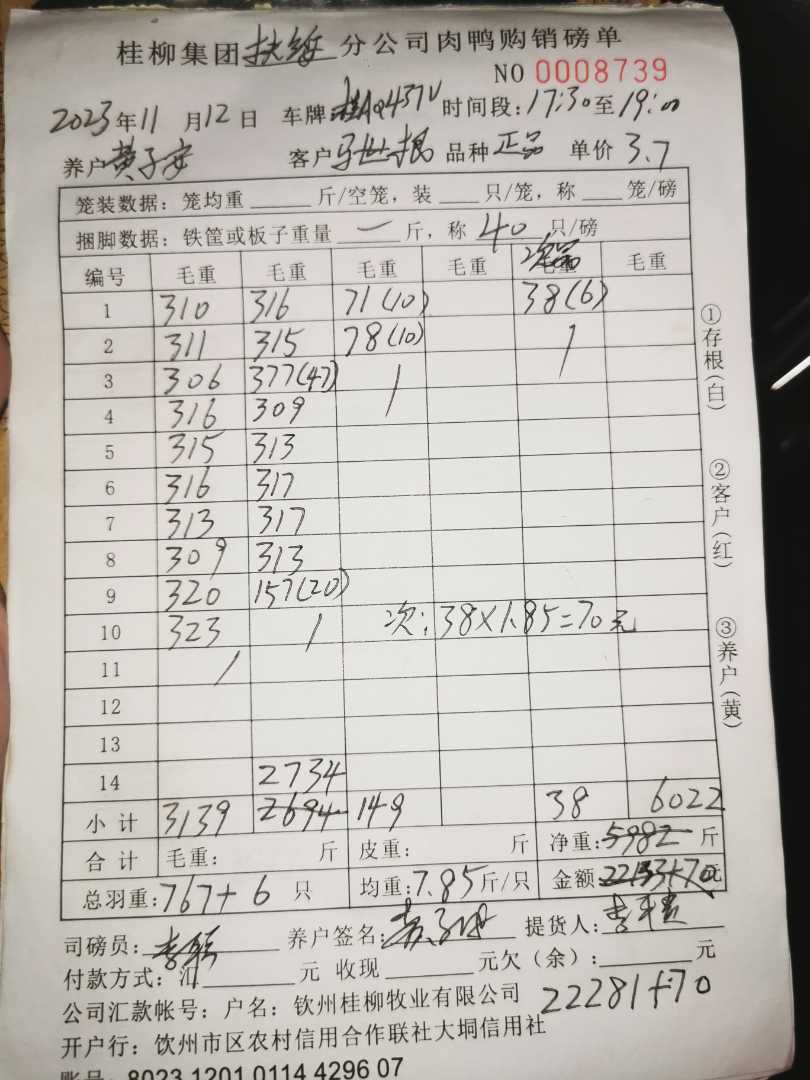 桂柳集团扶绥分公司肉鸭购销磅单
NO 0008739
2023年11月12日 车牌 时间段:17:30至19:00
养户黄子安 客户马世报 品种正品 单价3.7
笼装数据:笼均重 斤/空笼,装 只/笼,称 笼/磅
捆脚数据:铁筐或板子重量一斤,称40只/磅
编号 毛重 毛重 毛重 毛重 次品 毛重
1 310 316 71(10) 38(6)
2 311 315 78(10) /
3 306 377(47) /
4 316 309
5 315 313
6 316 317
7 313 317
8 309 313
9 320 157(20)
10 323 / 次:38×1.85=70元
11 /
12
13
14 2734
小计 3139 2694 149 38 6022
合计 毛重: 斤 皮重: 斤 净重:5982斤
总羽重:767+6只 均重:7.85斤/只 金额:22133+70元
司磅员: 养户签名: 提货人:
付款方式:汇 元 收现 元欠(余): 元
公司汇款帐号:户名:钦州桂柳牧业有限公司 22281+70
开户行:钦州市区农村信用合作联社大垌信用社
账号:8023 1201 0114 4296 07
①存根(白)
②客户(红)
③养户(黄)